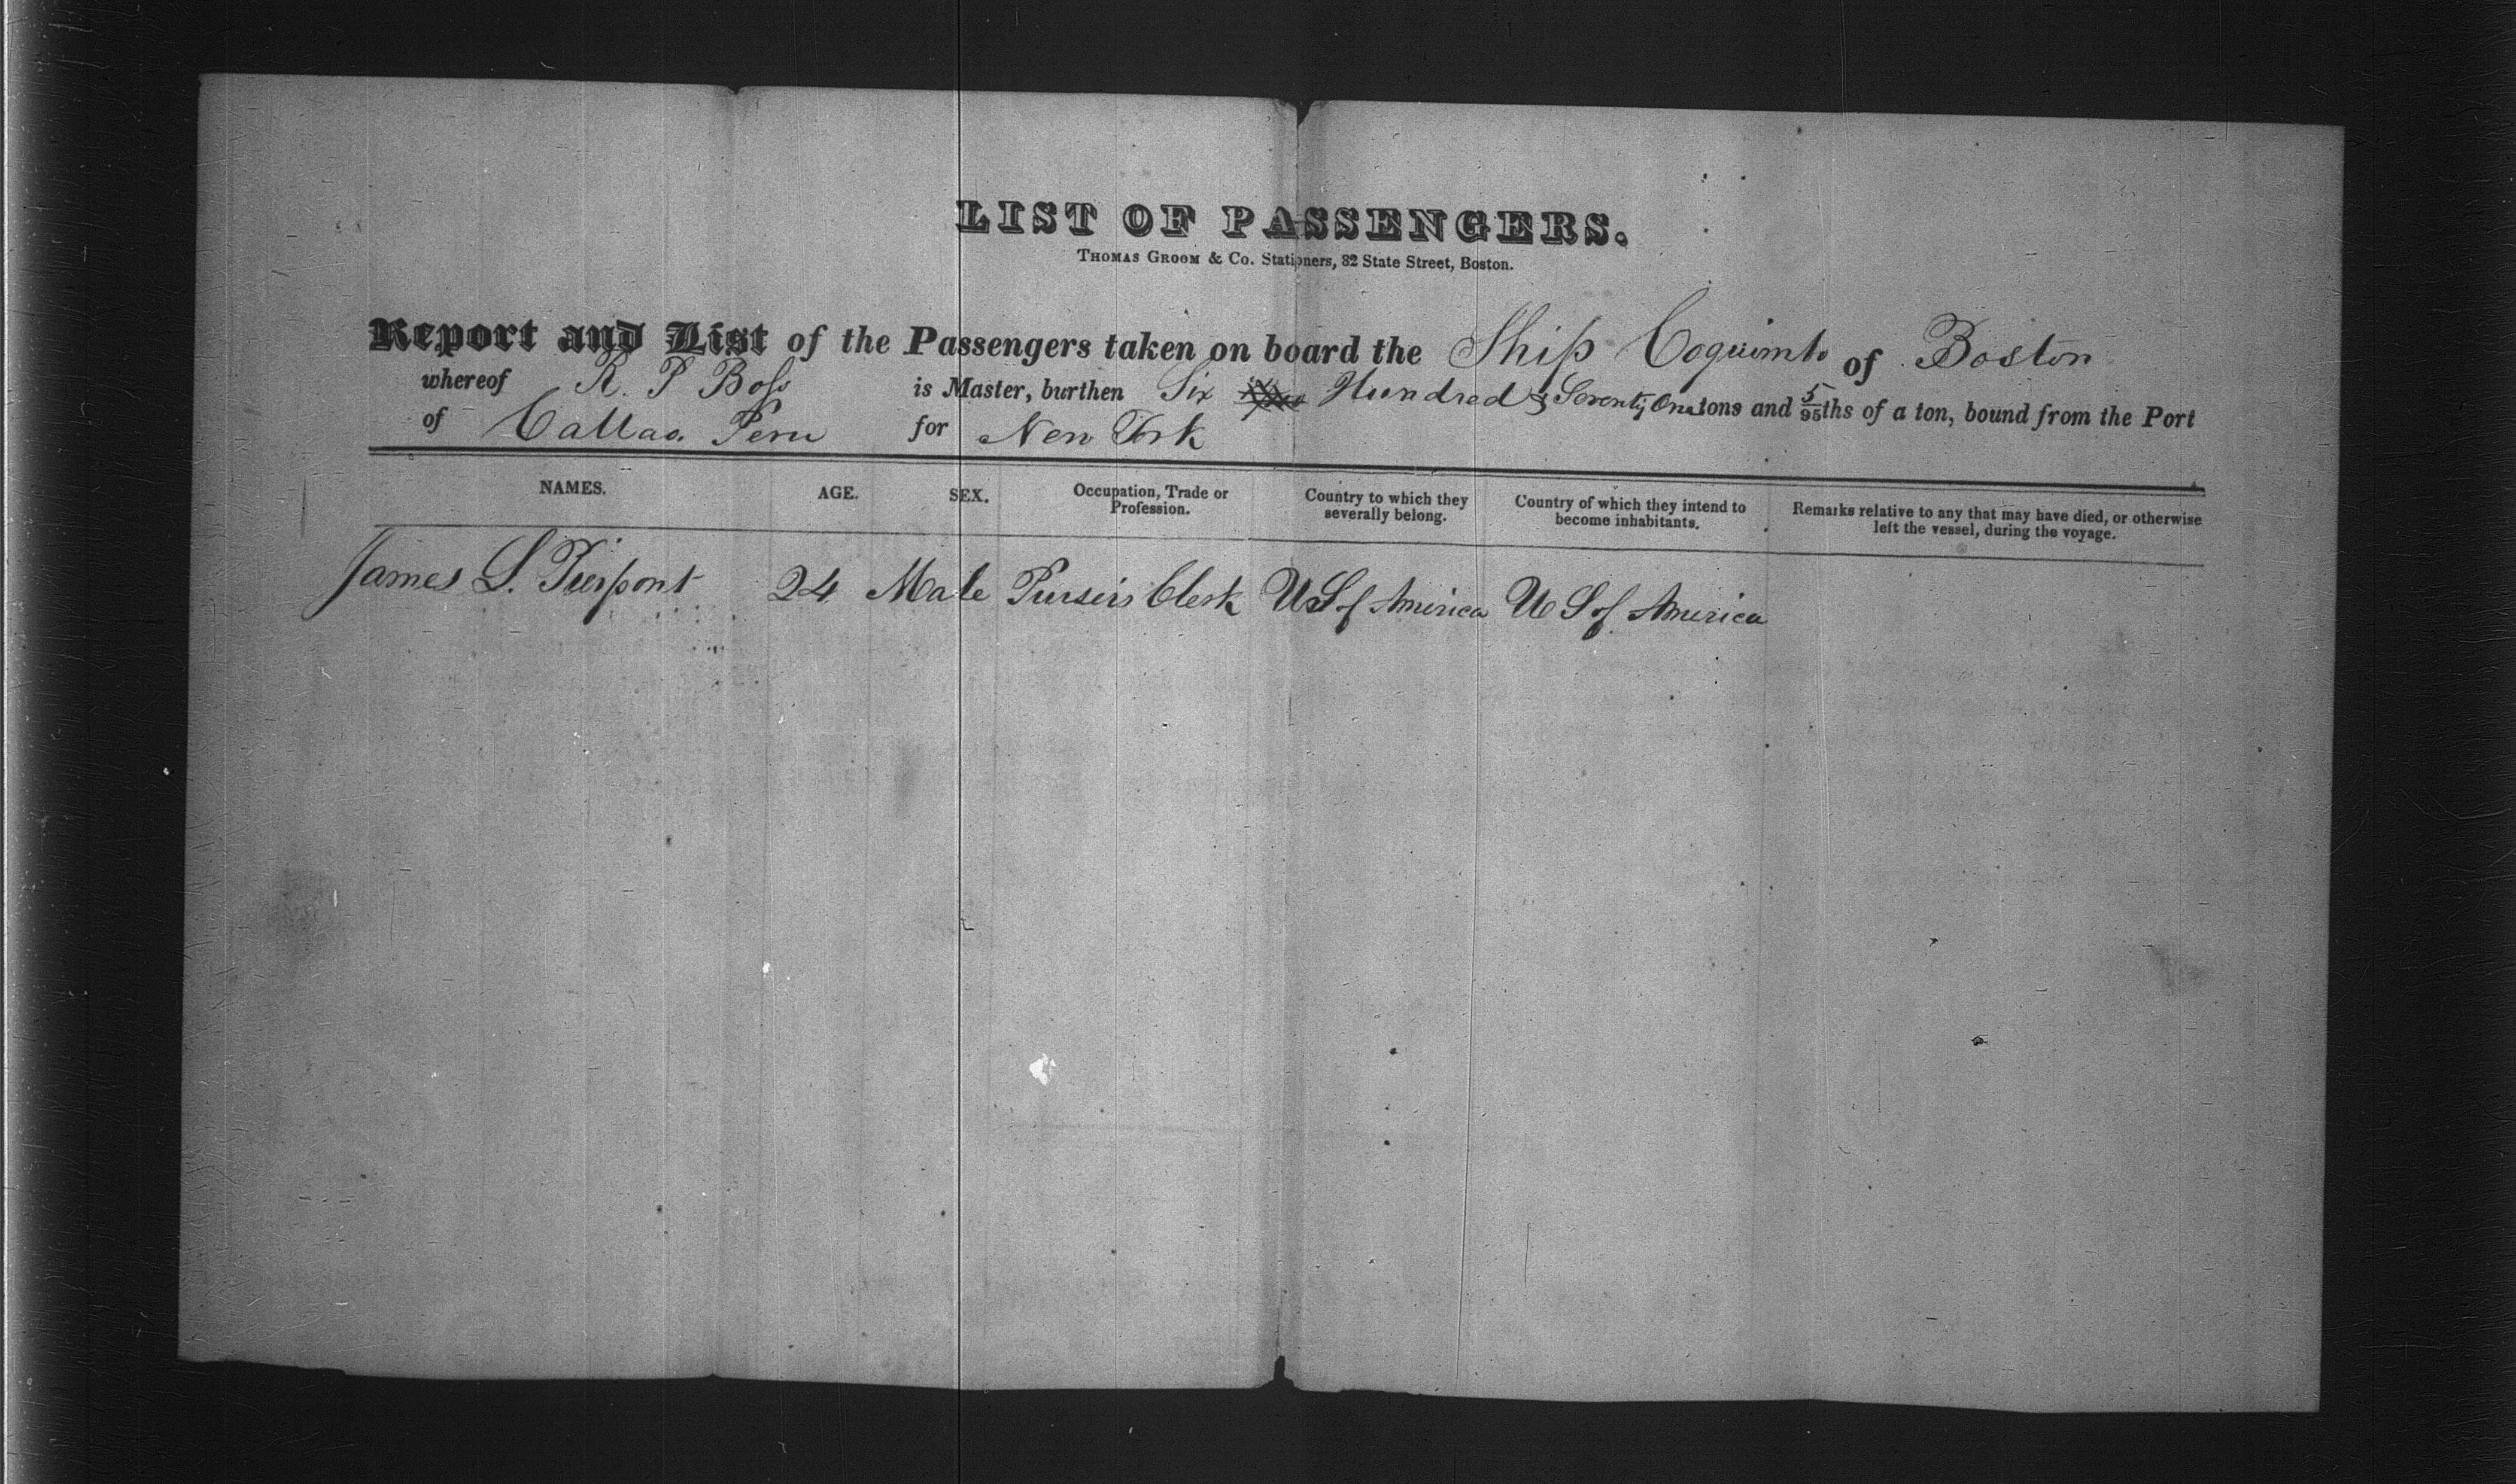 LIST OF PASSENGERS.
THOMAS GROOM & Co. Stationers, 82 State Street, Boston.
Report and List of the Passengers taken on board the Ship Coquimbo of Boston
whereof R. P Boss is Master, burthen Six Hundred & Seventy One tons and 5/95ths of a ton, bound from the Port
of Callao. Peru for New York
NAMES. AGE. SEX. Occupation, Trade or Profession. Country to which they severally belong. Country of which they intend to become inhabitants. Remarks relative to any that may have died, or otherwise left the vessel, during the voyage.
James S. Pierpont 24 Male Pursers Clerk US of America US of America